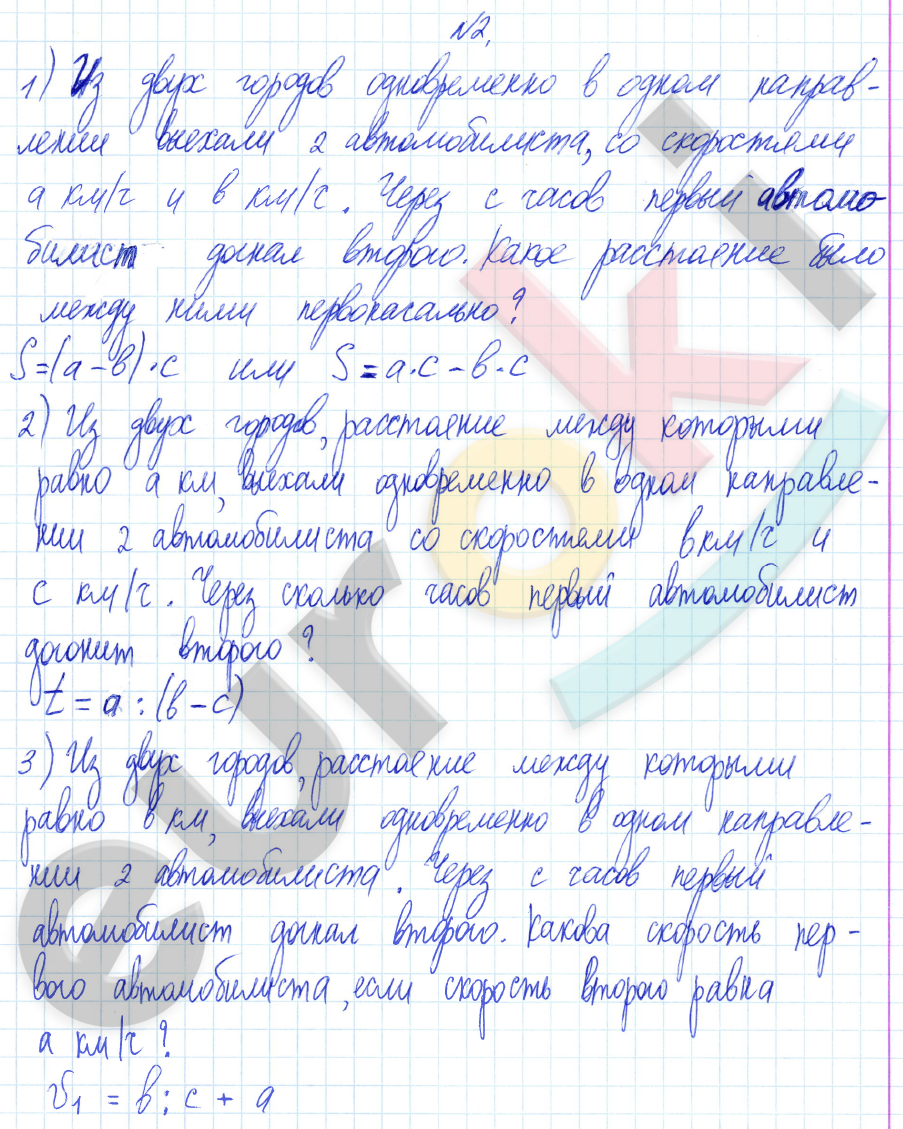 №2.
1) Из двух городов одновременно в одном направ-
лении выехали 2 автомобилиста, со скоростями
а км/ч и в км/ч. Через с часов первый автомо-
билист догнал второго. Какое расстояние было
между ними первоначально?
S=(a-в)·c или S=a·c-в·c
2) Из двух городов, расстояние между которыми
равно а км, выехали одновременно в одном направле-
нии 2 автомобилиста со скоростями в км/ч и
с км/ч. Через сколько часов первый автомобилист
догонит второго?
t = a : (в - с)
3) Из двух городов, расстояние между которыми
равно в км, выехали одновременно в одном направле-
нии 2 автомобилиста. Через с часов первый
автомобилист догнал второго. Какова скорость пер-
вого автомобилиста, если скорость второго равна
а км/ч?
v₁ = в : с + а
euroki